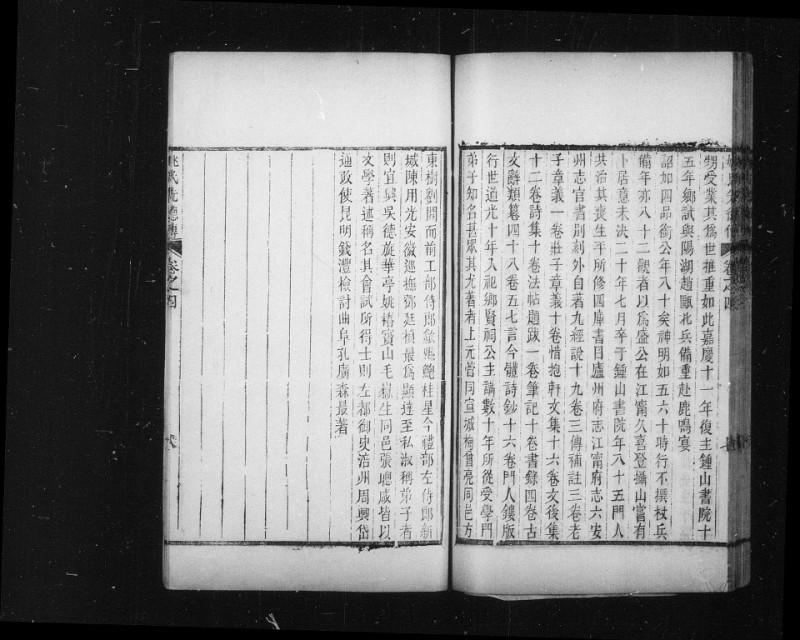 甥受業其爲世推重如此嘉慶十一年復主鍾山書院十
五年鄉試與陽湖趙甌北兵備重赴鹿鳴宴
詔加四品銜公年八十矣神明如五六十時行不撰杖兵
備年亦八十二觀者以爲盛公在江甯久喜登攝山嘗有
卜居意未決二十年七月卒于鍾山書院年八十五門人
共治其喪生平所修四庫書目廬州府志江甯府志六安
州志官書別刻外自著九經說十九卷三傳補註三卷老
子章義一卷莊子章義十卷惜抱軒文集十六卷文後集
十二卷詩集十卷法帖題跋一卷筆記十卷書錄四卷古
文辭類篹四十八卷五七言今體詩鈔十六卷門人鏤版
行世道光十年入祀鄉賢祠公主講數十年所從受學門
弟子知名甚眾其尤著者上元管同宣城梅曾亮同邑方
東樹劉開而前工部侍郎歙縣鮑桂星今禮部左侍郎新
城陳用光安徽巡撫鄧廷楨最爲顯達至私淑稱弟子者
則宜興吳德旋華亭姚椿寶山毛嶽生同邑張聰咸皆以
文學著述稱名其會試所得士則左都御史涪州周興岱
通政使昆明錢灃檢討曲阜孔廣森最著
姚氏先德傳
卷之四